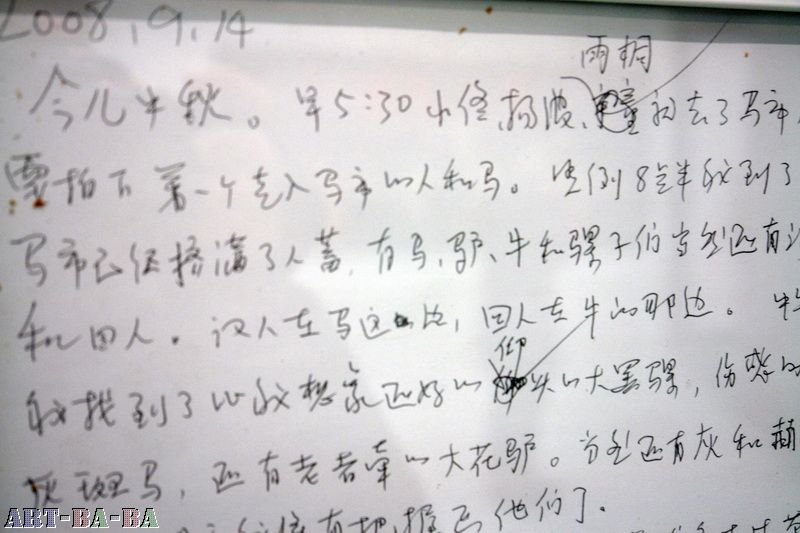 2008.9.14
雨桐
今儿中秋。早5:30小佟、杨波、和去了马市,
要拍下第一个走入马市的人和马。坐到8点半我到了
马市已经挤满了人畜,有马、驴、牛和骡子们当然还有汉
和回人。汉人在马这边,回人在牛的那边。
仰
我找到了比我想象还好的头的大黑骡,伤感的
灰斑马,还有老者牵的大花驴。当然还有灰和
有地,握已他们了.
ART-BA-BA